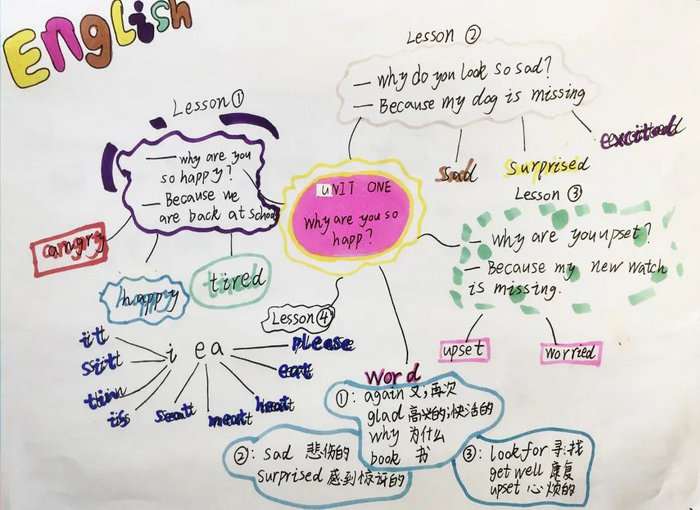 English
Lesson ①
— why are you
so happy?
— Because we
are back at school
angry
happy
tired
Lesson ②
— why do you look so sad?
— Because my dog is missing
sad
surprised
excited
UNIT ONE
why are you so
happ?
Lesson ③
— why are you upset?
— Because my new watch
is missing.
upset
worried
Lesson ④
i
it
sit
is
ea
please
eat
seat
meat
heat
word
①: again 又,再次
glad 高兴的;快活的
why 为什么
book 书
②: sad 悲伤的
surprised 感到惊讶的
③: look for 寻找
get well 康复
upset 心烦的